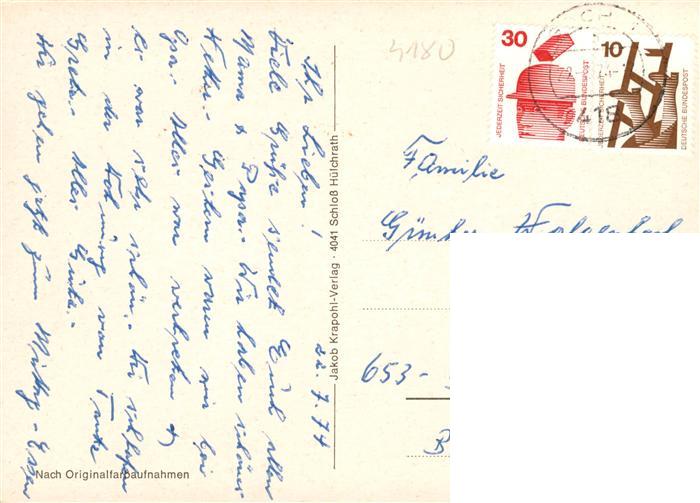 Ihr Lieben!
22.7.74
Viele Grüße sendet Euch allen
Mama & Papa. Wir haben schönes
Wetter. Gestern waren wir bei
Opa. Alles war vertreten &
es war sehr schön. Wir schlafen
in der Wohnung von Tante
Greta. Alles Gute.
Wir gehen jetzt zum Mittag-Essen
Nach Originalfarbaufnahmen
Jakob Krapohl-Verlag · 4041 Schloß Hülchrath
4180
30
JEDERZEIT SICHERHEIT
DEUTSCHE BUNDESPOST
10
JEDERZEIT SICHERHEIT
DEUTSCHE BUNDESPOST
418
Familie
Günter
653-
B